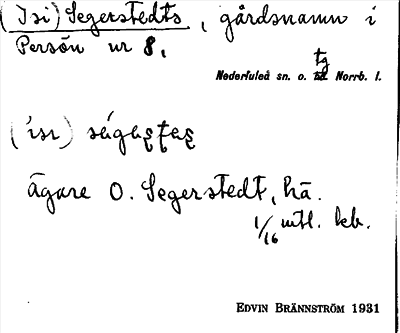 (Isi) Segerstedts, gårdsnamn i
Persön nr 8.
tg
Nederluleå sn. o. Norrb. l.
ägare O. Segerstedt, hä.
1/16 mtl. kb.
EDVIN BRÄNNSTRÖM 1931